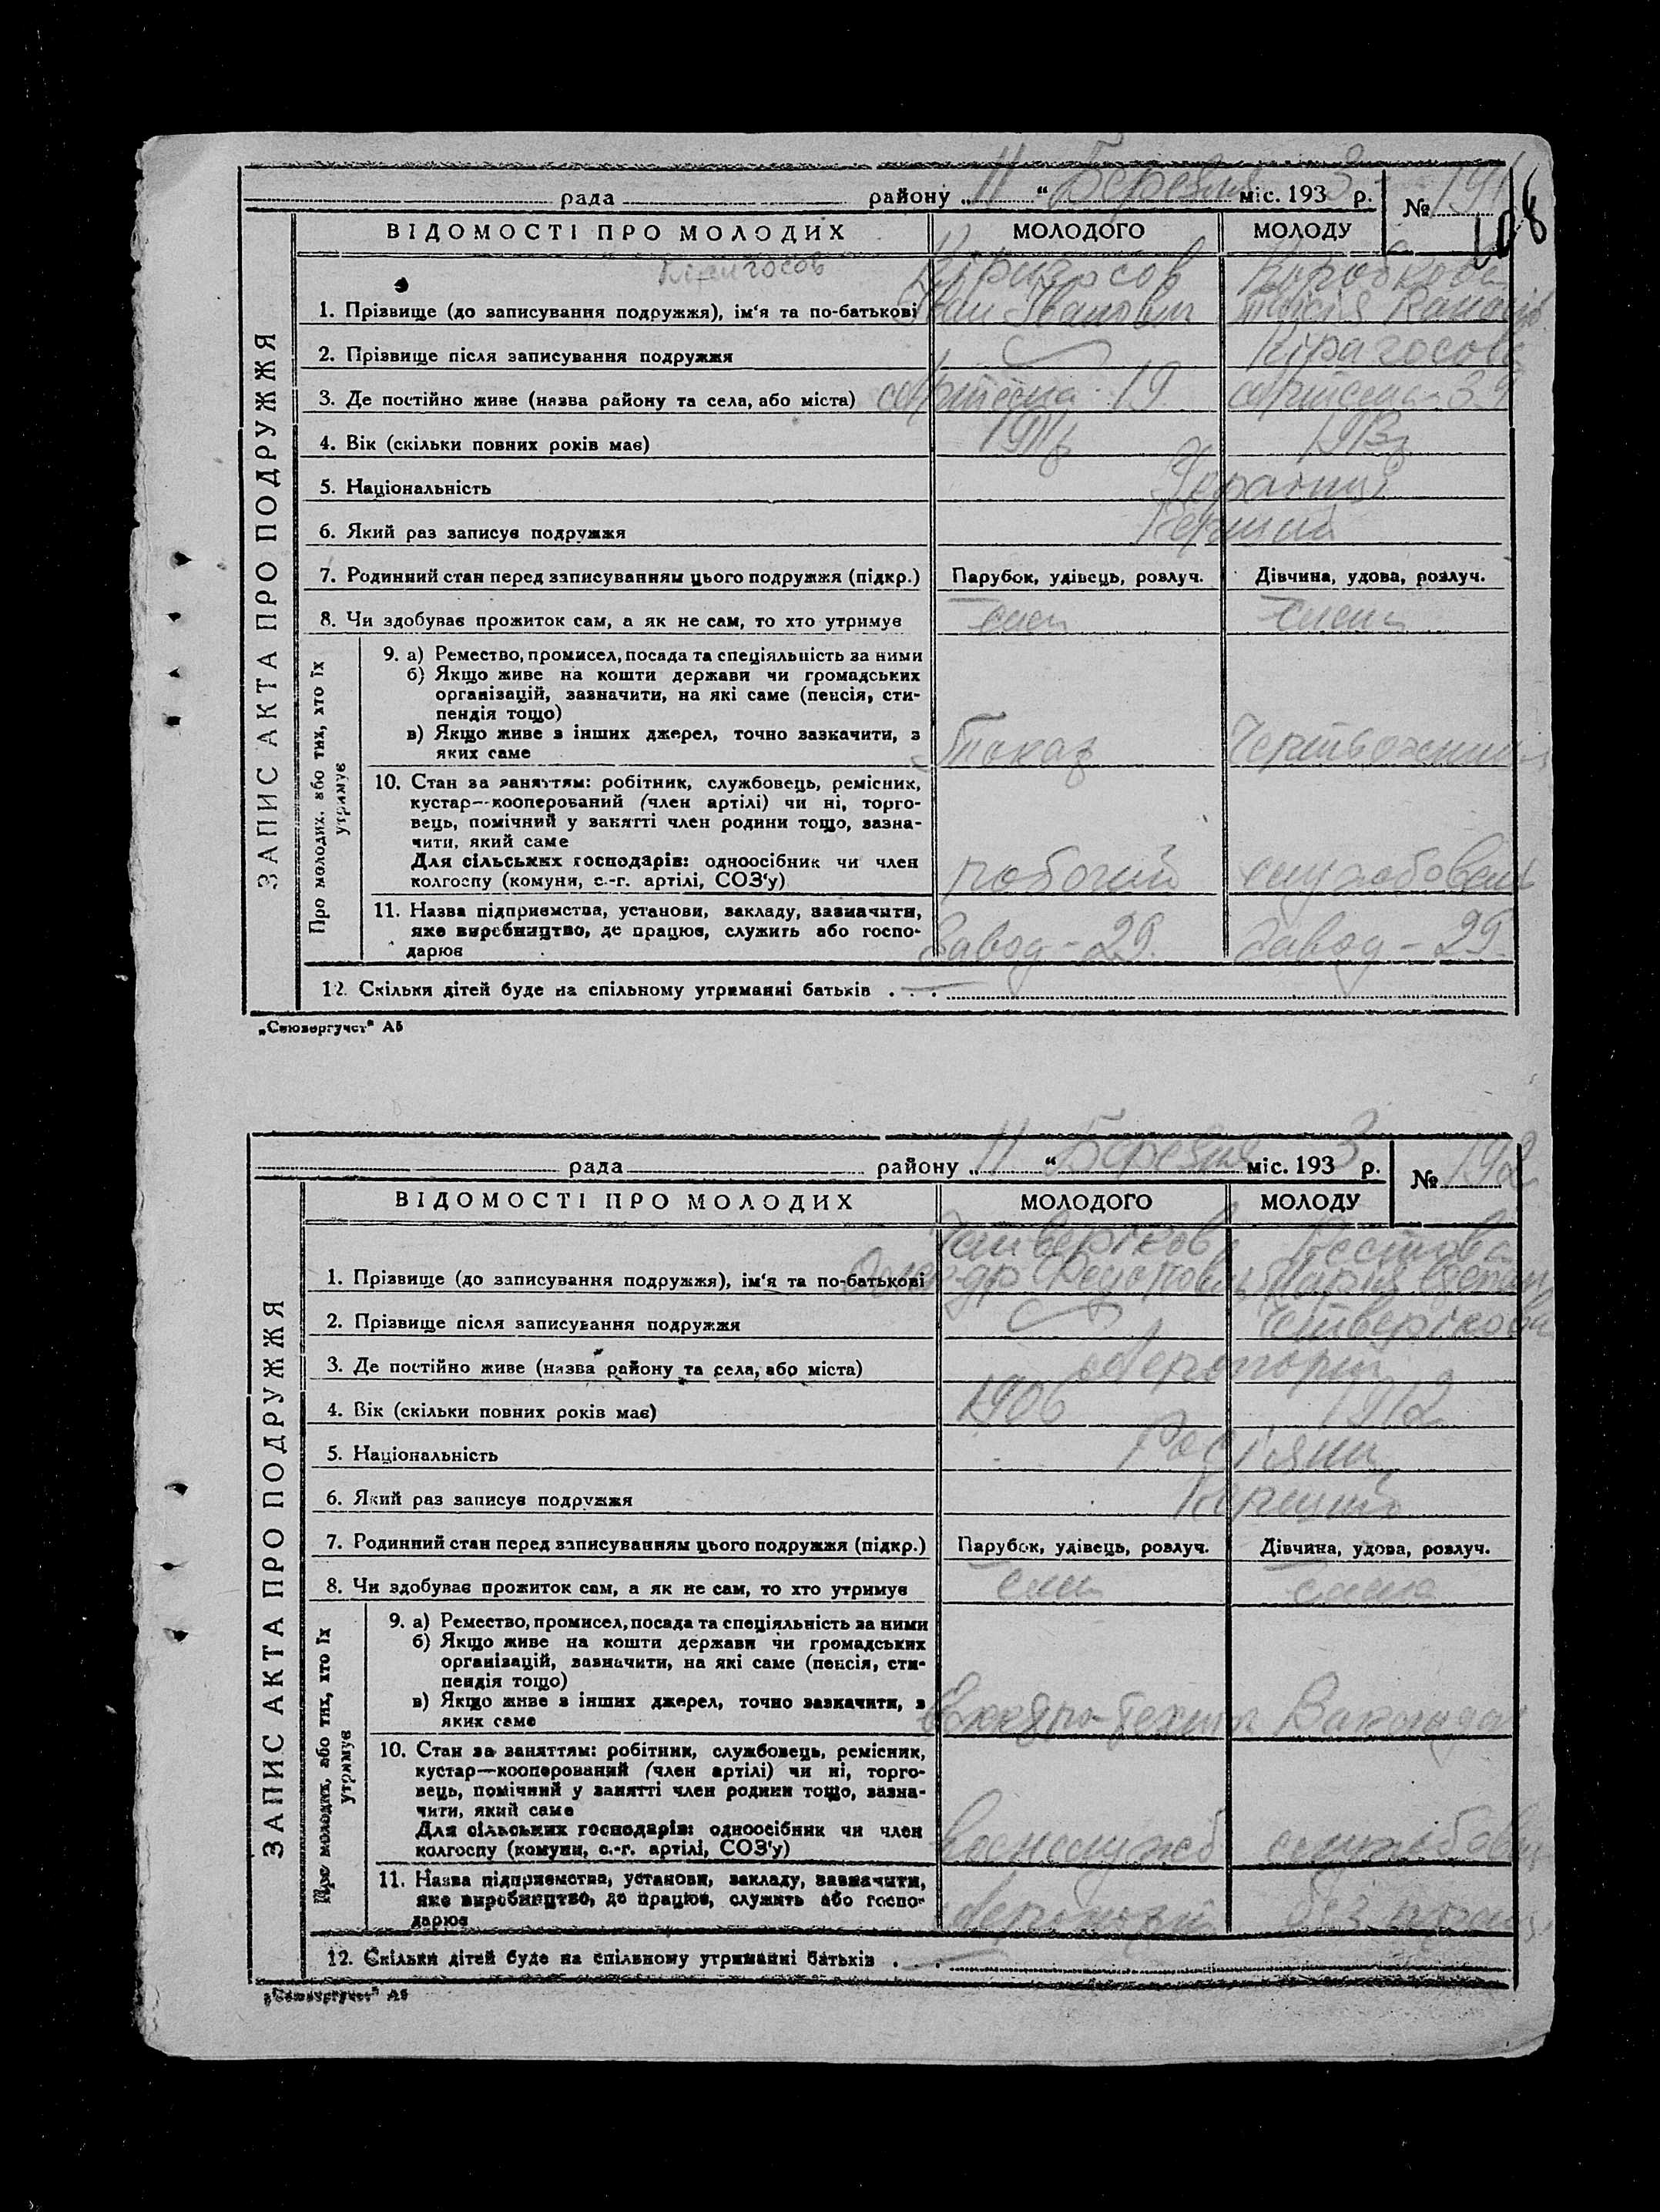 рада района „ 11 “ Березня міс. 1933 р. № 191
108
ВІДОМОСТІ ПРО МОЛОДИХ МОЛОДОГО МОЛОДУ
ЗАПИС АКТА ПРО ПОДРУЖЖЯ
Кірагосов
1. Прізвище (до записування подружжя), ім‘я та по-батькові Іван Іванович
2. Прізвище після записування подружжя Кірагосова
3. Де постійно живе (назва району та села, або міста) 19 39
4. Вік (скільки повних років має) 1911 1913
5. Національність
6. Який раз записує подружжя Перший
7. Родинний стан перед записуванням цього подружжя (підкр.) Парубок, удівець, розлуч. Дівчина, удова, розлуч.
8. Чи здобуває прожиток сам, а як не сам, то хто утримує сам сама
Про молодих, або тих, хто їх утримує
9. а) Ремество, промисел, посада та спеціяльність за ними
б) Якщо живе на кошти держави чи громадських
організацій, зазначити, на які саме (пенсія, сти-
пендія тощо)
в) Якщо живе з інших джерел, точно зазкачити, з
яких саме Токар
10. Стан за заняттям: робітник, службовець, ремісник,
кустар—кооперований (член артілі) чи ні, торго-
вець, помічний у занятті член родини тощо, зазна-
чити, який саме
Для сільських господарів: одноосібник чи член
колгоспу (комуни, с.-г. артілі, СОЗ‘у) робочий службовець
11. Назва підприємства, установи, закладу, зазначити,
яке виробництво, де працює, служить або госпо-
дарює Завод – 29. Завод – 29.
12. Скільки дітей буде на спільному утриманні батьків . . .
„Союзоргучет“ А5
рада району „ 11 “ Березня міс. 1933 р. № 192
ВІДОМОСТІ ПРО МОЛОДИХ МОЛОДОГО МОЛОДУ
ЗАПИС АКТА ПРО ПОДРУЖЖЯ
Четверіков
1. Прізвище (до записування подружжя), ім‘я та по-батькові Марія
2. Прізвище після записування подружжя Четверікова
3. Де постійно живе (назва району та села, або міста) Аеропорт
4. Вік (скільки повних років має) 1906 1912
5. Національність Росіяни
6. Який раз записує подружжя Перший
7. Родинний стан перед записуванням цього подружжя (підкр.) Парубок, удівець, розлуч. Дівчина, удова, розлуч.
8. Чи здобуває прожиток сам, а як не сам, то хто утримує сам сама
Про молодих, або тих, хто їх утримує
9. а) Ремество, промисел, посада та спеціяльність за ними
б) Якщо живе на кошти держави чи громадських
організацій, зазначити, на які саме (пенсія, сти-
пендія тощо)
в) Якщо живе з інших джерел, точно зазкачити, з
яких саме
10. Стан за заняттям: робітник, службовець, ремісник,
кустар—кооперований (член артілі) чи ні, торго-
вець, помічний у занятті член родини тощо, зазна-
чити, який саме
Для сільських господарів: одноосібник чи член
колгоспу (комуни, с.-г. артілі, СОЗ‘у)
11. Назва підприємства, установи, закладу, зазначити,
яке виробництво, де працює, служить або госпо-
дарює без праці
12. Скільки дітей буде на спільному утриманні батьків . . .
„Союзоргучет“ А5